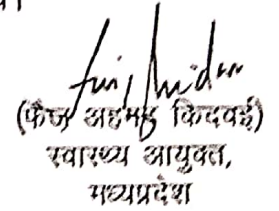 (फैज अहमद किदवई)
स्वास्थ्य आयुक्त,
मध्यप्रदेश